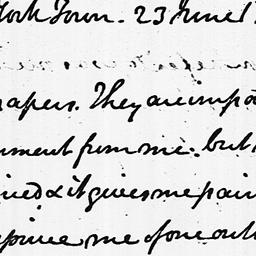 York Town. 23 June 1
papers. They are impo
ument from me. but
ined & it gives me pain
eprive me of one out